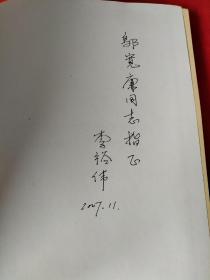 邬宪康同志指正
李裕伟
2007.11.